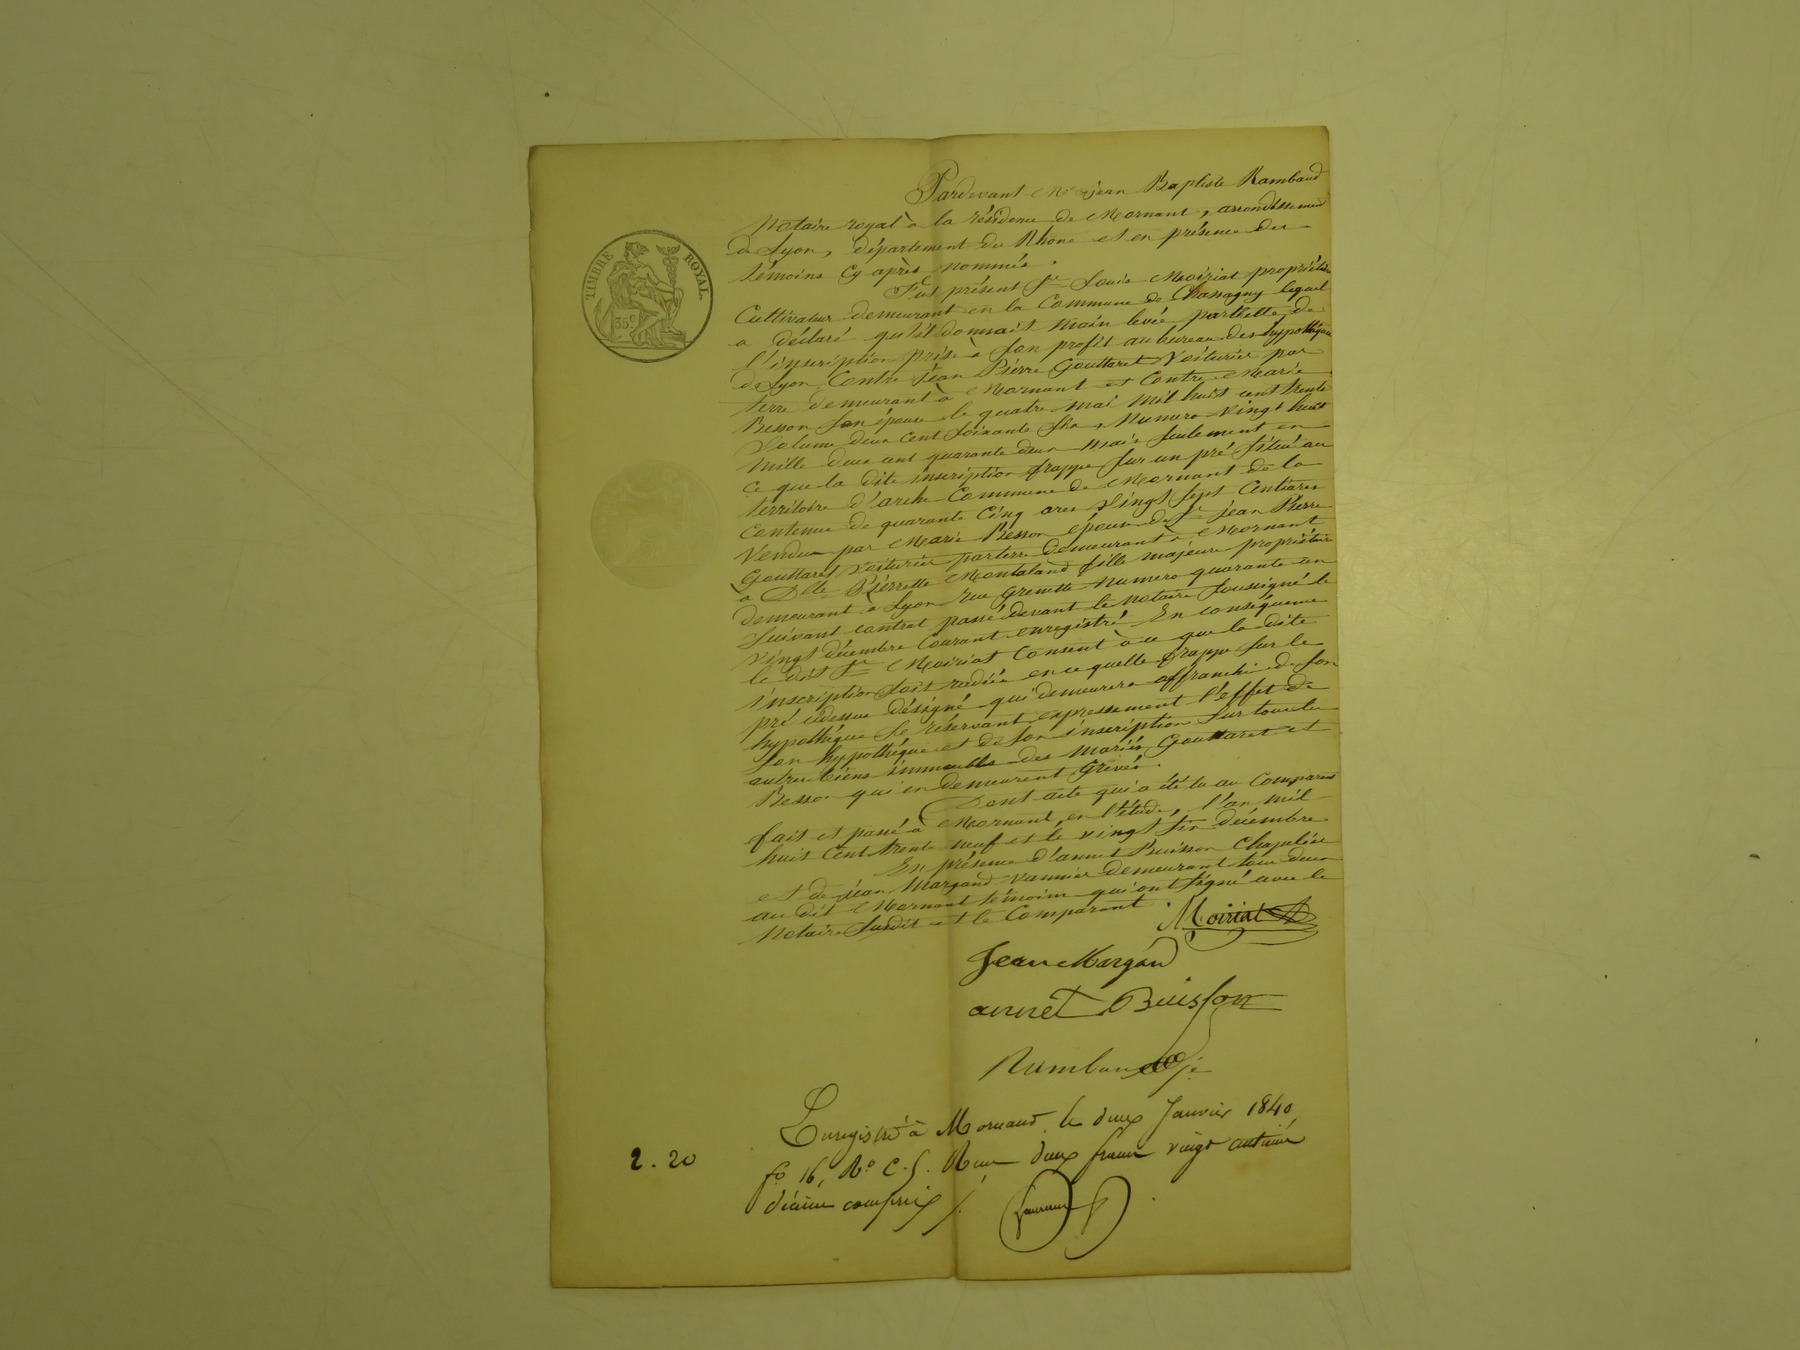 TIMBRE ROYAL.
35 c
Pardevant Me jean Baptiste Rambaud
Notaire royal à la résidence de Mornant, arrondissement
de Lyon, département du Rhône et en présence des
témoins cy après nommés.
Fut présent Sr Louis Moiriat propriétaire
Cultivateur demeurant en la Commune de Chassagny lequel
a déclaré qu'il donnait main levée partielle de
l'inscription prise à son profit au bureau des hypothèques
de Lyon, Contre Jean Pierre Gouttaret Voiturier par
terre demeurant à Mornant et Contre Marie
Besson son épouse le quatre mai mil huit cent trente
Volume deux cent soixante six, Numéro vingt huit
mille deux cent quarante deux mais seulement en
ce que la dite inscription frappe sur un pré situé au
territoire d'arche Commune de Mornant de la
contenue de quarante cinq ares vingt sept Centiares
Vendu par Marie Besson épouse de Sr jean Pierre
Gouttaret voiturier par terre demeurant à Mornant
à Dlle Pierrette Montaland fille majeure propriétaire
demeurant à Lyon rue Grenette numero quarante un
suivant contrat passé devant le notaire soussigné le
vingt décembre Courant enregistré En conséquence
le dit Sr Moiriat Consent à ce que la dite
inscription soit radiée en ce quelle frappe sur le
pré cidessus désigné qui demeurera affranchi de son
hypothèque se réservant expressement l'effet de
son hypothèque et de son inscription sur tous les
autres biens immeubles des mariés Gouttaret et
Besson qui en demeurent grévés.
Dont acte qui a été lu au Comparant
fait et passé à Mornant, en l'étude, l'an mil
huit Cent trente neuf et le vingt six décembre
En présence d'annet Buisson Chapelier
et de jean Margand vannier demeurant tous deux
au dit Mornant témoins qui ont signé avec le
Notaire susdit et le Comparant.
Moiriat
Jean Margand
annet Buisson
Rambaud
Enregistré à Mornant le deux Janvier 1840,
fo 16, Ro C. 5. Reçu deux francs vingt centimes
2.20
décime compris